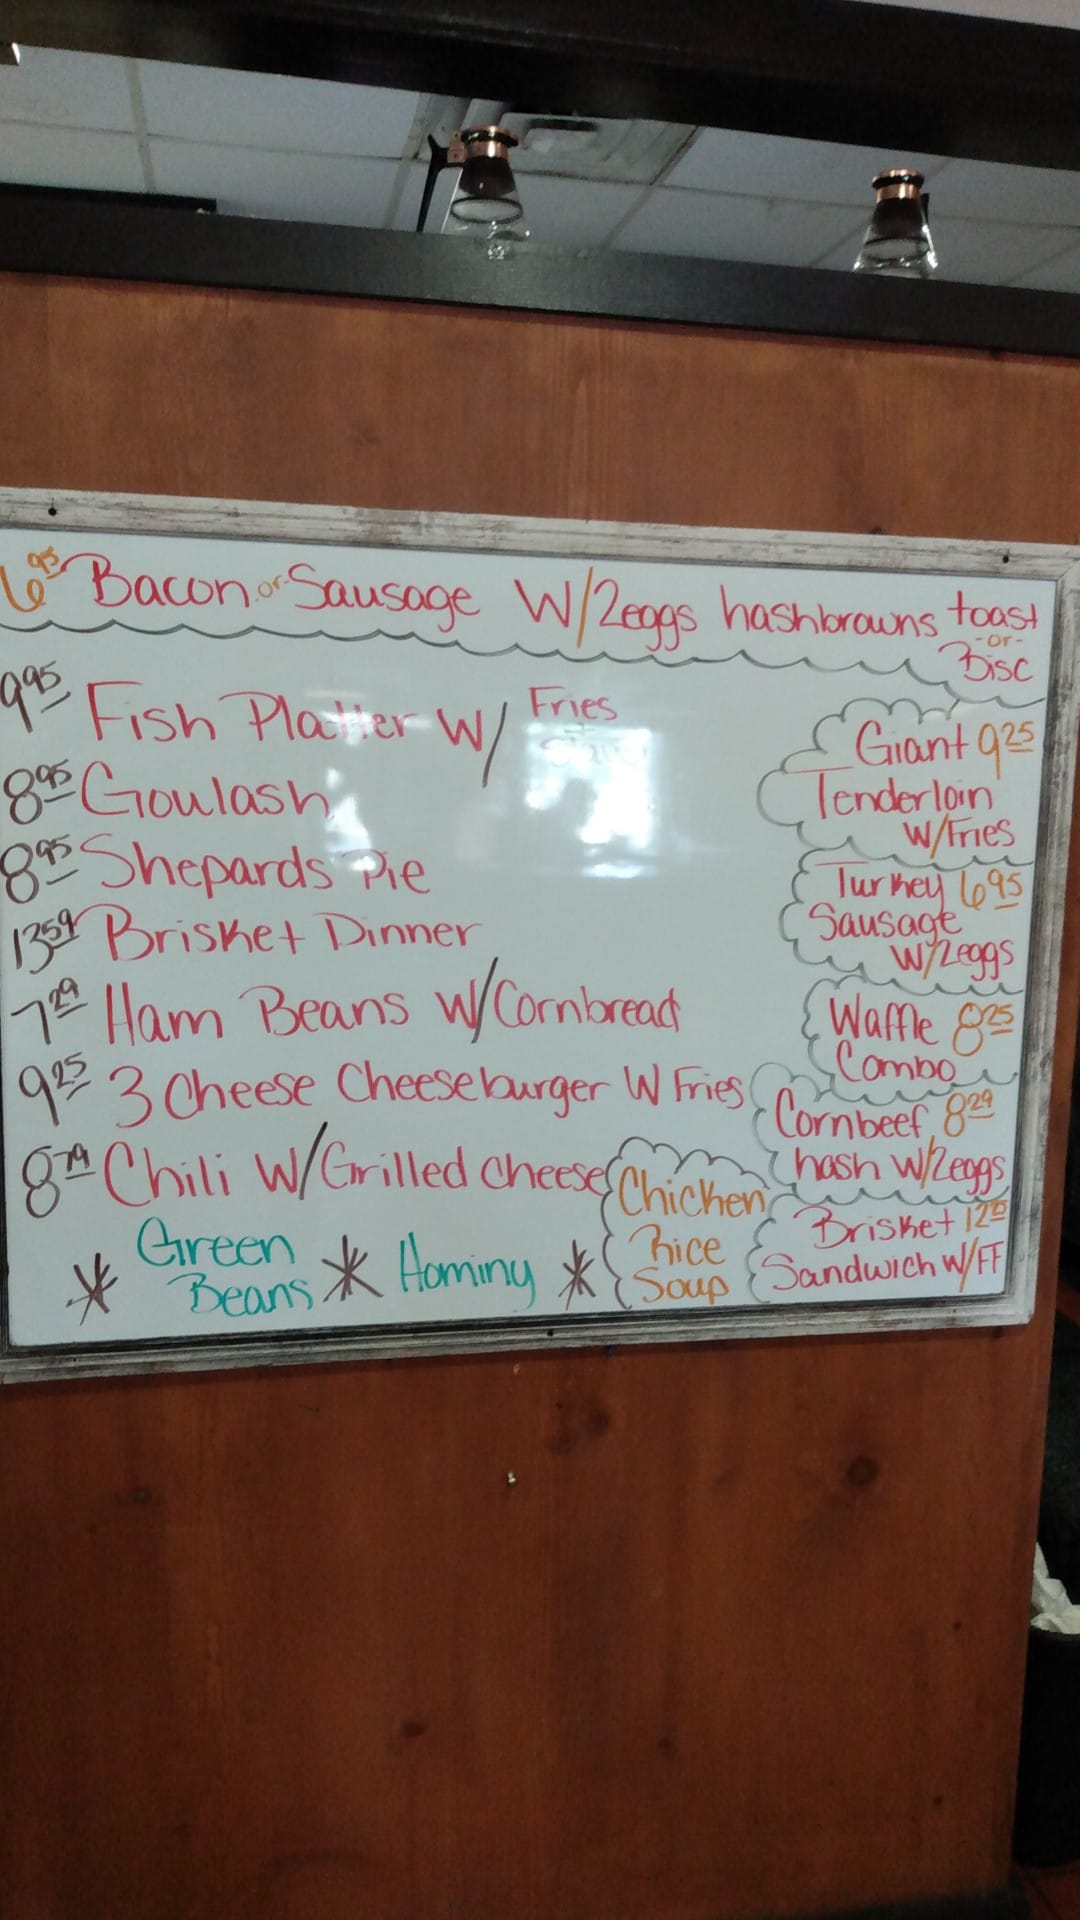 6.95 Bacon or Sausage W/2eggs hashbrowns toast
-or-
Bisc
9.95 Fish Platter W/ Fries
+
8.95 Goulash
8.95 Shepards Pie
13.59 Brisket Dinner
7.29 Ham Beans W/Cornbread
9.25 3 Cheese Cheeseburger W Fries
8.79 Chili W/Grilled cheese
* Green Beans * Hominy *
Chicken
Rice
Soup
Giant 9.25
Tenderloin
W/Fries
Turkey 6.95
Sausage
W/2eggs
Waffle 8.25
Combo
Cornbeef 8.29
hash W/2eggs
Brisket
Sandwich W/FF